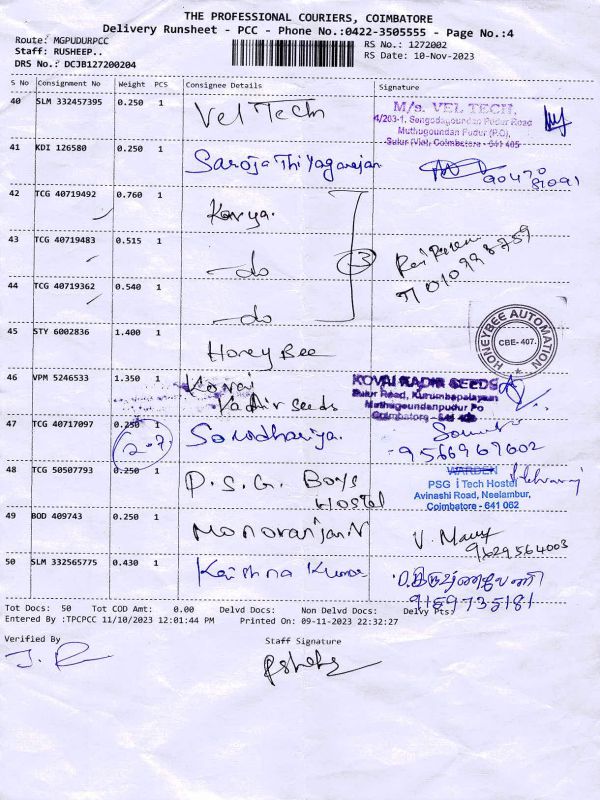 THE PROFESSIONAL COURIERS, COIMBATORE
Delivery Runsheet - PCC - Phone No.:0422-3505555 - Page No.:4
Route: MGPUDURPCC
RS No.: 1272002
Staff: RUSHEEP..
RS Date: 10-Nov-2023
DRS No.: DCJB127200204
S No Consignment No Weight PCS Consignee Details Signature
40 SLM 332457395 0.250 1 Vel Tech
M/s. VEL TECH,
4/203-1, Sengodagoundan Pudur Road
Muthugoundan Pudur (P.O),
Sulur (Via), Coimbatore - 641 405
41 KDI 126580 0.250 1 Saroja Thiyagarajan
90470
81091
42 TCG 40719492 0.760 1 Kavya.
43 TCG 40719483 0.515 1 do 3
44 TCG 40719362 0.540 1 do
45 STY 6002836 1.400 1 Honey Bee
HONEYBEE AUTOMATION
CBE- 407.
46 VPM 5246533 1.350 1 Kovai
Kadhir seeds
KOVAI KADIR SEEDS
Sulur Road, Kurumbapalayam
Muthugoundanpudur Po
Coimbatore - 641 406
47 TCG 40717097 0.250 1
9566967602
48 TCG 50507793 0.250 1 P.S.G. Boys
Hostel
WARDEN
PSG iTech Hostel
Avinashi Road, Neelambur,
Coimbatore - 641 062
49 BOD 409743 0.250 1 Manoranjan.V
9629564003
50 SLM 332565775 0.430 1 Krishna Kumar
9159735181
Tot Docs: 50 Tot COD Amt: 0.00 Delvd Docs: Non Delvd Docs: Delvy Pts:
Entered By :TPCPCC 11/10/2023 12:01:44 PM Printed On: 09-11-2023 22:32:27
Verified By Staff Signature